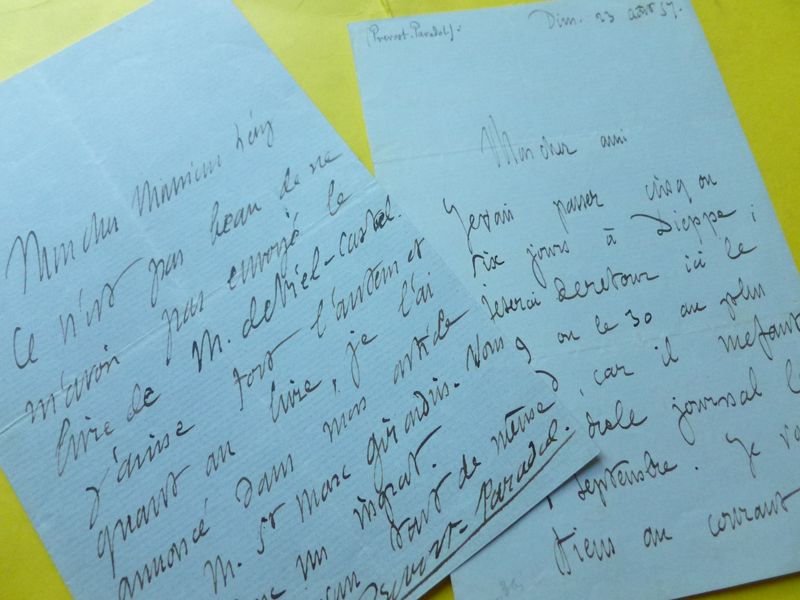 Mon cher Monsieur Lévy
Ce n'est pas beau de ne
m'avoir pas envoyé le
livre de M. de Viel-Castel.
J'aime fort l'auteur et
quant au livre, je l'ai
annoncé dans mon article
M. St Marc Girardin. Vous
un ingrat.
tout de même
Prevost-Paradol.
(Prevost-Paradol).
Dim. 23 août 57.
Mon cher ami
Je vais passer cinq ou
six jours à Dieppe ;
je serai de retour ici le
ou le 30 au plus
car il me faut
journal le
septembre. Je
tiens au courant